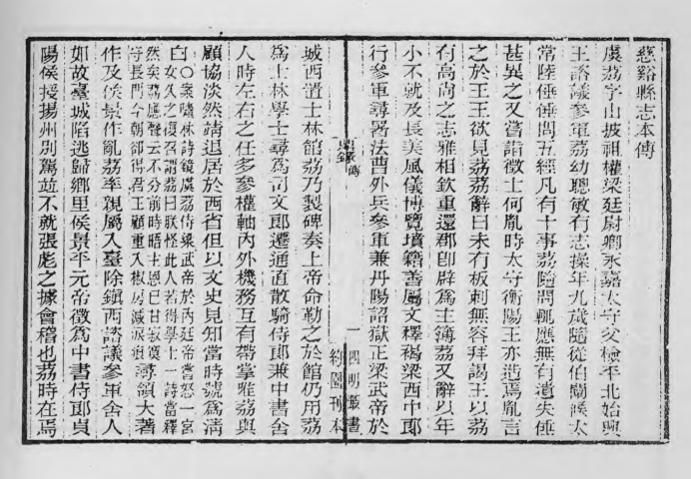 慈谿縣志本傳
虞荔字山披祖權梁廷尉卿永嘉太守父檢平北始興
王諮議參軍荔幼聰敏有志操年九歲隨從伯闡候太
常陸倕倕問五經凡有十事荔隨問輒應無有遺失倕
甚異之又嘗詣徵士何胤時太守衡陽王亦造焉胤言
之於王王欲見荔荔辭曰未有板刺無容拜謁王以荔
有高尚之志雅相欽重還郡卽辟爲主簿荔又辭以年
小不就及長美風儀博覽墳籍善屬文釋褐梁西中郎
行參軍尋署法曹外兵參軍兼丹陽詔獄正梁武帝於
傳
一
四明叢書
約園刊本
城西置士林館荔乃製碑奏上帝命勒之於館仍用荔
爲士林學士尋爲司文郎遷通直散騎侍郎兼中書舍
人時左右之任多參權軸內外機務互有帶掌唯荔與
顧協淡然靖退居於西省但以文史見知當時號爲淸
白〇案隱林詩鏡虞荔侍梁武帝於丙廷帝嘗怒一宮
女久之復召謂荔曰朕怪此人若得學士一詩當釋
然矣荔應聲云不分前時晤主恩已甘寂漠
守長門今朝卻得君王顧重入椒房減淚痕尋領大著
作及侯景作亂荔率親屬入臺除鎭西諮議參軍舍人
如故臺城陷逃歸鄉里侯景平元帝徵爲中書侍郎貞
陽侯授揚州別駕竝不就張彪之據會稽也荔時在焉